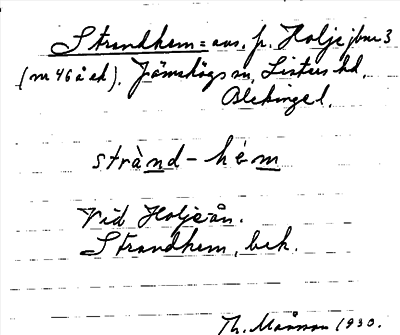 Strandhem = avs. fr. Holje jbnr 3
(nr 46 å ek). Jämshögs sn, Listers hd,
Blekinge l.
strànd - hém
Vid Holjeån.
Strandhem, bek.
Th. Månsson 1930.